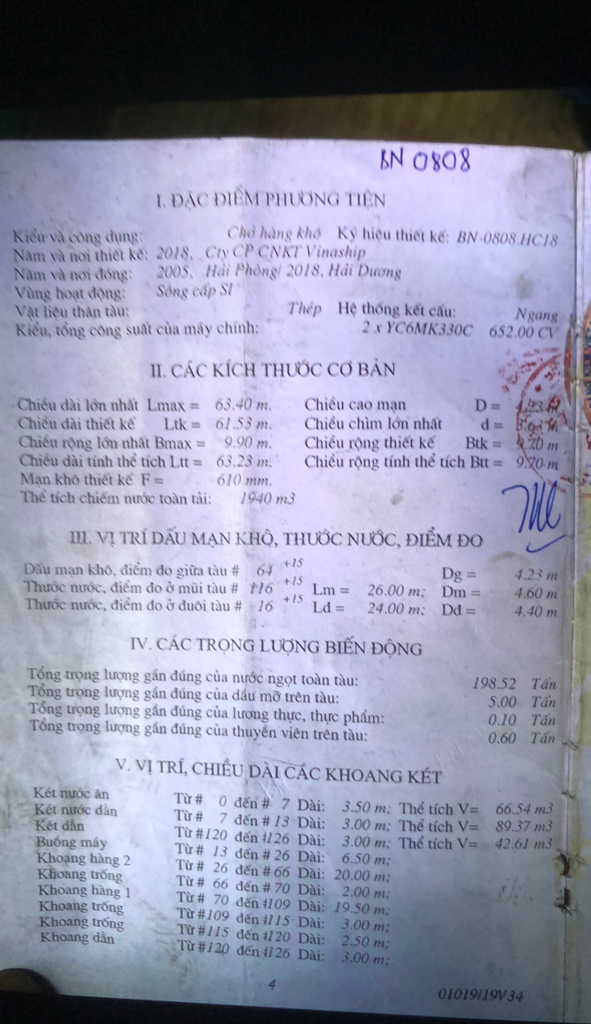 BN 0808
I. ĐẶC ĐIỂM PHƯƠNG TIỆN
Kiểu và công dụng: Chở hàng khô Ký hiệu thiết kế: BN-0808.HC18
Năm và nơi thiết kế: 2018, Cty CP CNKT Vinaship
Năm và nơi đóng: 2005, Hải Phòng/ 2018, Hải Dương
Vùng hoạt động: Sông cấp SI
Vật liệu thân tàu: Thép Hệ thống kết cấu: Ngang
Kiểu, tổng công suất của máy chính: 2 x YC6MK330C 652.00 CV
II. CÁC KÍCH THƯỚC CƠ BẢN
Chiều dài lớn nhất Lmax = 63.40 m. Chiều cao mạn D =
Chiều dài thiết kế Ltk = 61.53 m. Chiều chìm lớn nhất d =
Chiều rộng lớn nhất Bmax = 9.90 m. Chiều rộng thiết kế Btk = 9.70 m
Chiều dài tính thể tích Ltt = 63.23 m. Chiều rộng tính thể tích Btt = 9.70 m
Mạn khô thiết kế F = 610 mm.
Thể tích chiếm nước toàn tải: 1940 m3
III. VỊ TRÍ DẤU MẠN KHÔ, THƯỚC NƯỚC, ĐIỂM ĐO
Dấu mạn khô, điểm đo giữa tàu # 64 +15 Dg = 4.23 m
Thước nước, điểm đo ở mũi tàu # 116 +15 Lm = 26.00 m; Dm = 4.60 m
Thước nước, điểm đo ở đuôi tàu # 16 +15 Lđ = 24.00 m; Dđ = 4.40 m
IV. CÁC TRỌNG LƯỢNG BIẾN ĐỘNG
Tổng trọng lượng gần đúng của nước ngọt toàn tàu: 198.52 Tấn
Tổng trọng lượng gần đúng của dầu mỡ trên tàu: 5.00 Tấn
Tổng trọng lượng gần đúng của lương thực, thực phẩm: 0.10 Tấn
Tổng trọng lượng gần đúng của thuyền viên trên tàu: 0.60 Tấn
V. VỊ TRÍ, CHIỀU DÀI CÁC KHOANG KÉT
Két nước ăn Từ # 0 đến # 7 Dài: 3.50 m; Thể tích V= 66.54 m3
Két nước dằn Từ # 7 đến # 13 Dài: 3.00 m; Thể tích V= 89.37 m3
Két dằn Từ #120 đến #126 Dài: 3.00 m; Thể tích V= 42.61 m3
Buồng máy Từ # 13 đến # 26 Dài: 6.50 m;
Khoang hàng 2 Từ # 26 đến # 66 Dài: 20.00 m;
Khoang trống Từ # 66 đến # 70 Dài: 2.00 m;
Khoang hàng 1 Từ # 70 đến #109 Dài: 19.50 m;
Khoang trống Từ #109 đến #115 Dài: 3.00 m;
Khoang trống Từ #115 đến #120 Dài: 2.50 m;
Khoang dằn Từ #120 đến #126 Dài: 3.00 m;
4
01019/19V34